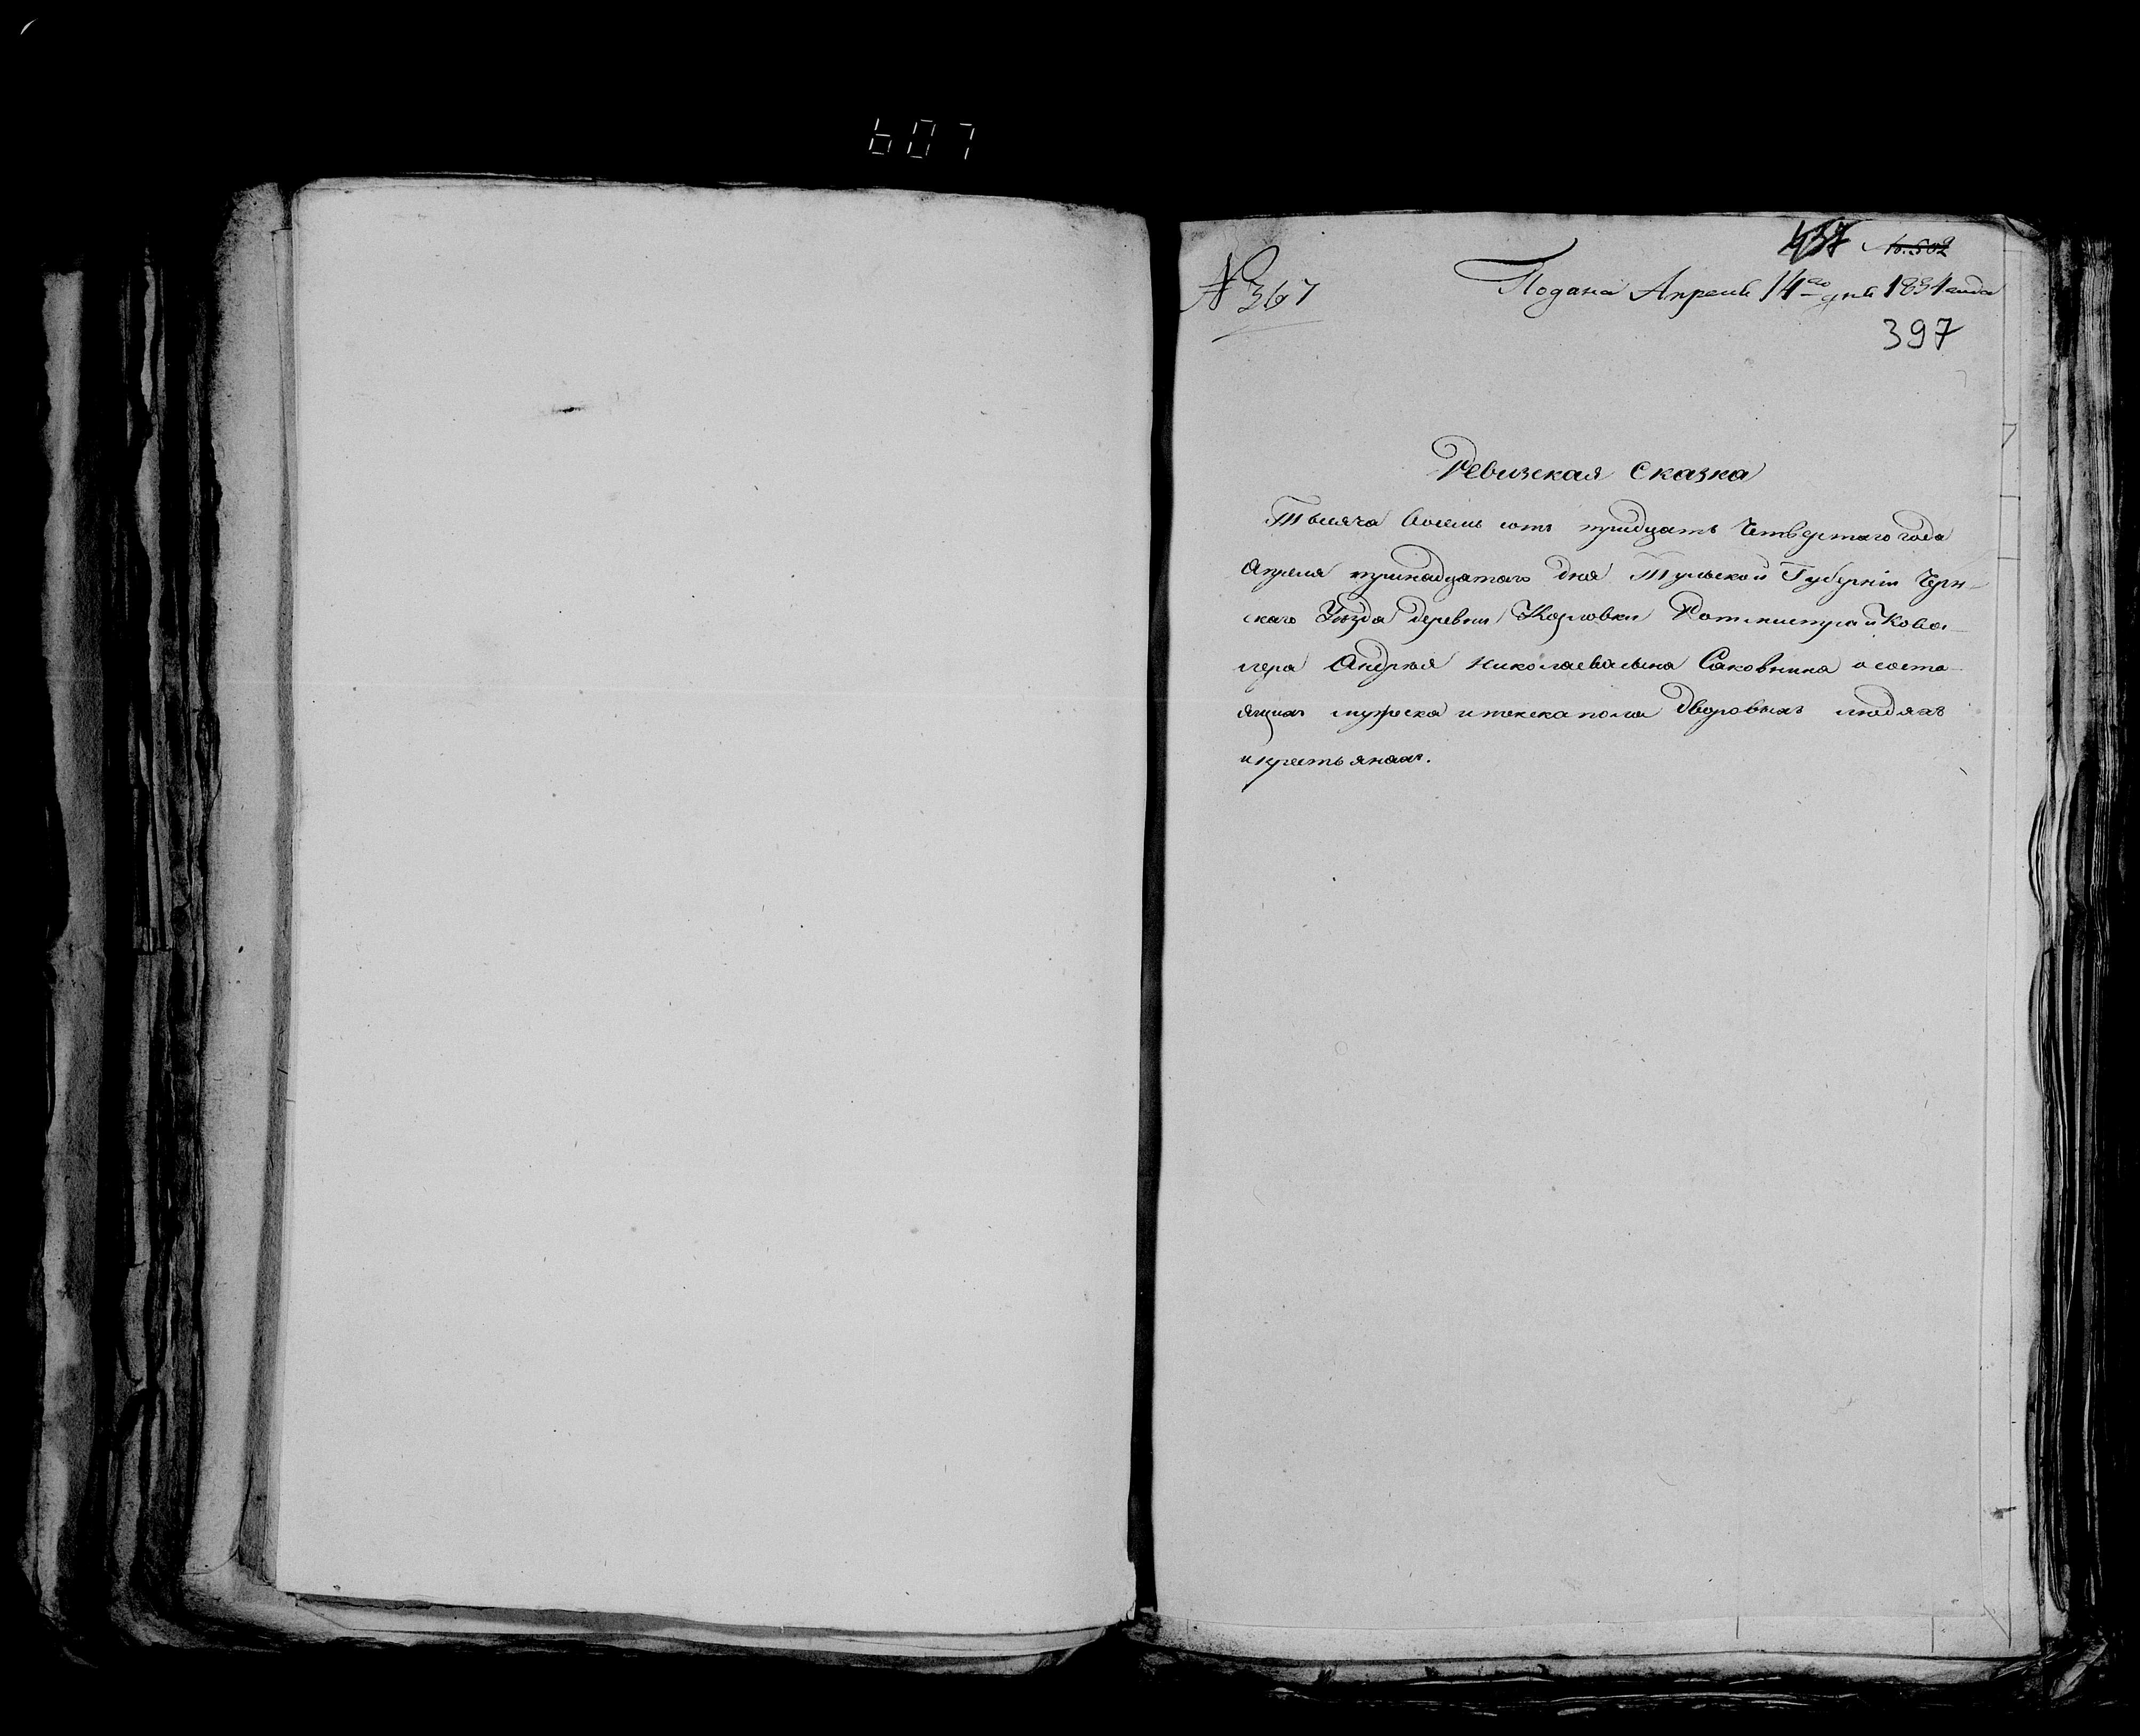 607
437 №502
№ 367
Подана Апреля 14го дня 1834 года
397
Ревизская Сказка
Тысяча восемь сотъ тридцать Четвертаго года
Апреля тринадцатаго дня Тульской Губерніи Черн-
скаго Уѣзда деревни Жарловки Ротмистра и Кова-
лера Андрея Николаева сына Саковнина о состо-
ящихъ мужеска и женска пола дворовыхъ людяхъ
и крестьянахъ.